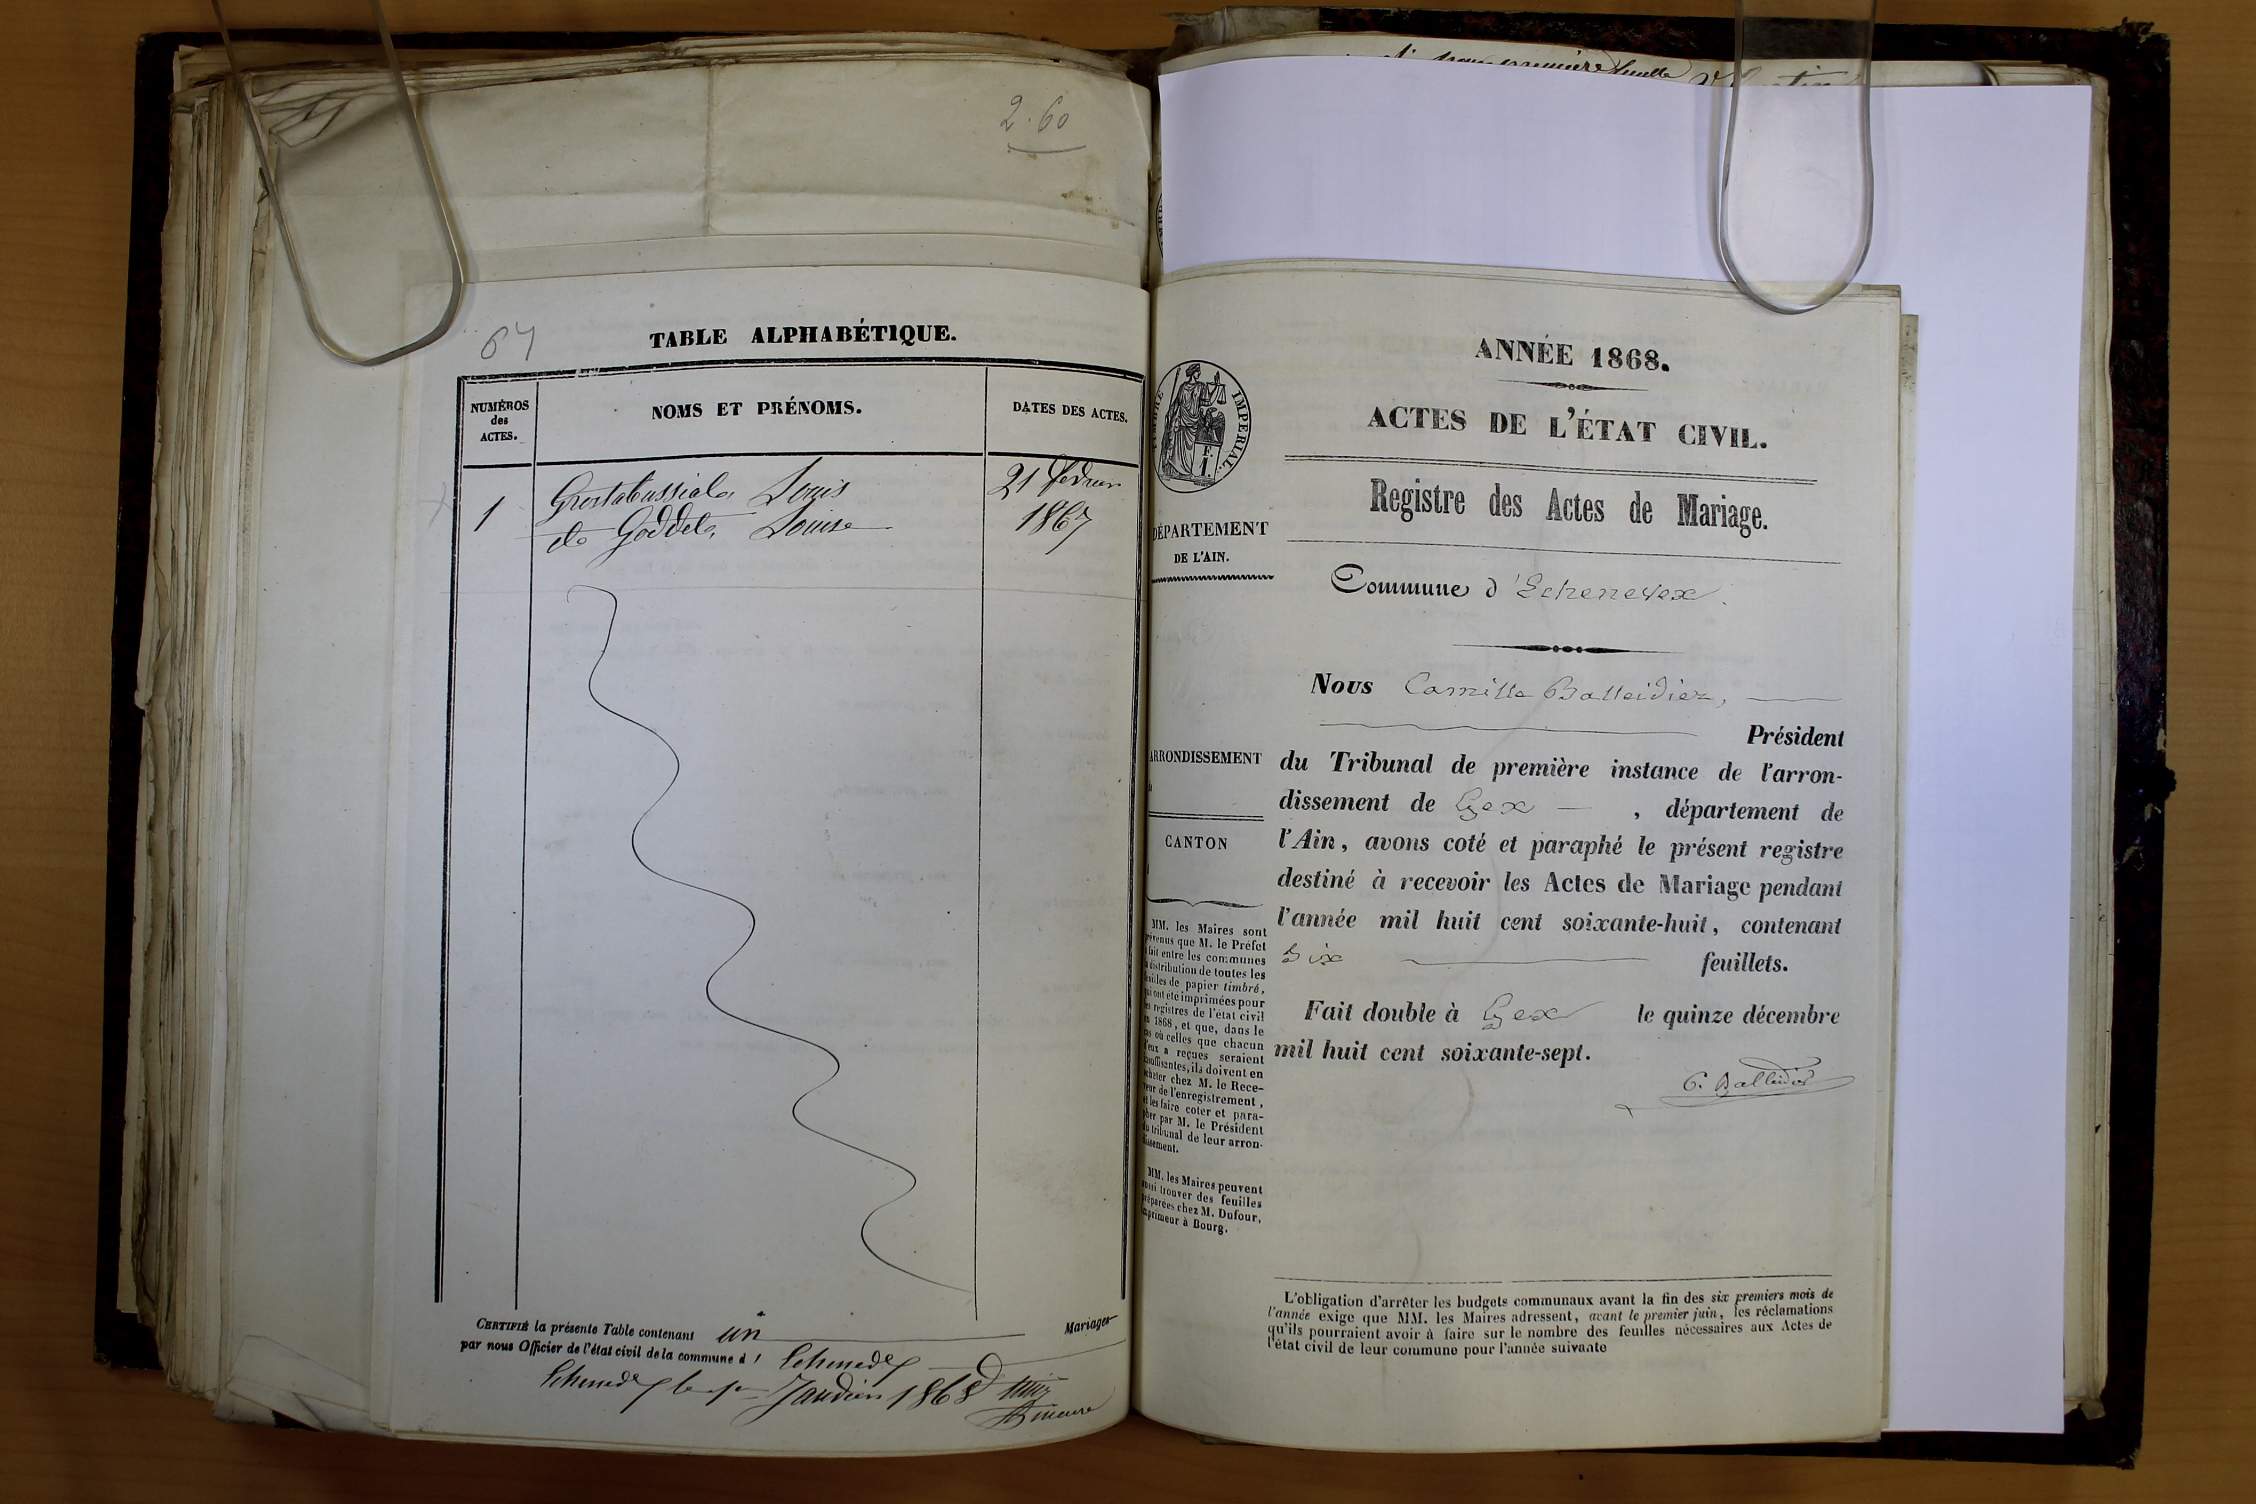 2.60
67
TABLE ALPHABÉTIQUE.
NUMÉROS
des
ACTES.
NOMS ET PRÉNOMS.
DATES DES ACTES.
1
Louis
de Goddet, Louise
21
1867
CERTIFIÉ la présente Table contenant un Mariages
par nous Officier de l'état civil de la commune d'
1868
première feuille
ANNÉE 1868.
ACTES DE L'ÉTAT CIVIL.
Registre des Actes de Mariage.
TIMBRE IMPÉRIAL.
F.
1.
DÉPARTEMENT
DE L'AIN.
Commune d'Echenevex.
Nous Camille Balleidier,
Président
ARRONDISSEMENT
du Tribunal de première instance de l'arron-
dissement de Gex, département de
l'Ain, avons coté et paraphé le présent registre
destiné à recevoir les Actes de Mariage pendant
l'année mil huit cent soixante-huit, contenant
six feuillets.
Fait double à Gex le quinze décembre
mil huit cent soixante-sept.
C. Balleidier
CANTON
MM. les Maires sont
prévenus que M. le Préfet
a fait entre les communes
la distribution de toutes les
feuilles de papier timbré,
qui ont été imprimées pour
les registres de l'état civil
en 1868, et que, dans le
cas où celles que chacun
d'eux a reçues seraient
insuffisantes, ils doivent en
acheter chez M. le Rece-
veur de l'enregistrement,
et les faire coter et para-
pher par M. le Président
du tribunal de leur arron-
dissement.
MM. les Maires peuvent
aussi trouver des feuilles
préparées chez M. Dufour,
imprimeur à Bourg.
L'obligation d'arrêter les budgets communaux avant la fin des six premiers mois de
l'année exige que MM. les Maires adressent, avant le premier juin, les réclamations
qu'ils pourraient avoir à faire sur le nombre des feuilles nécessaires aux Actes de
l'état civil de leur commune pour l'année suivante